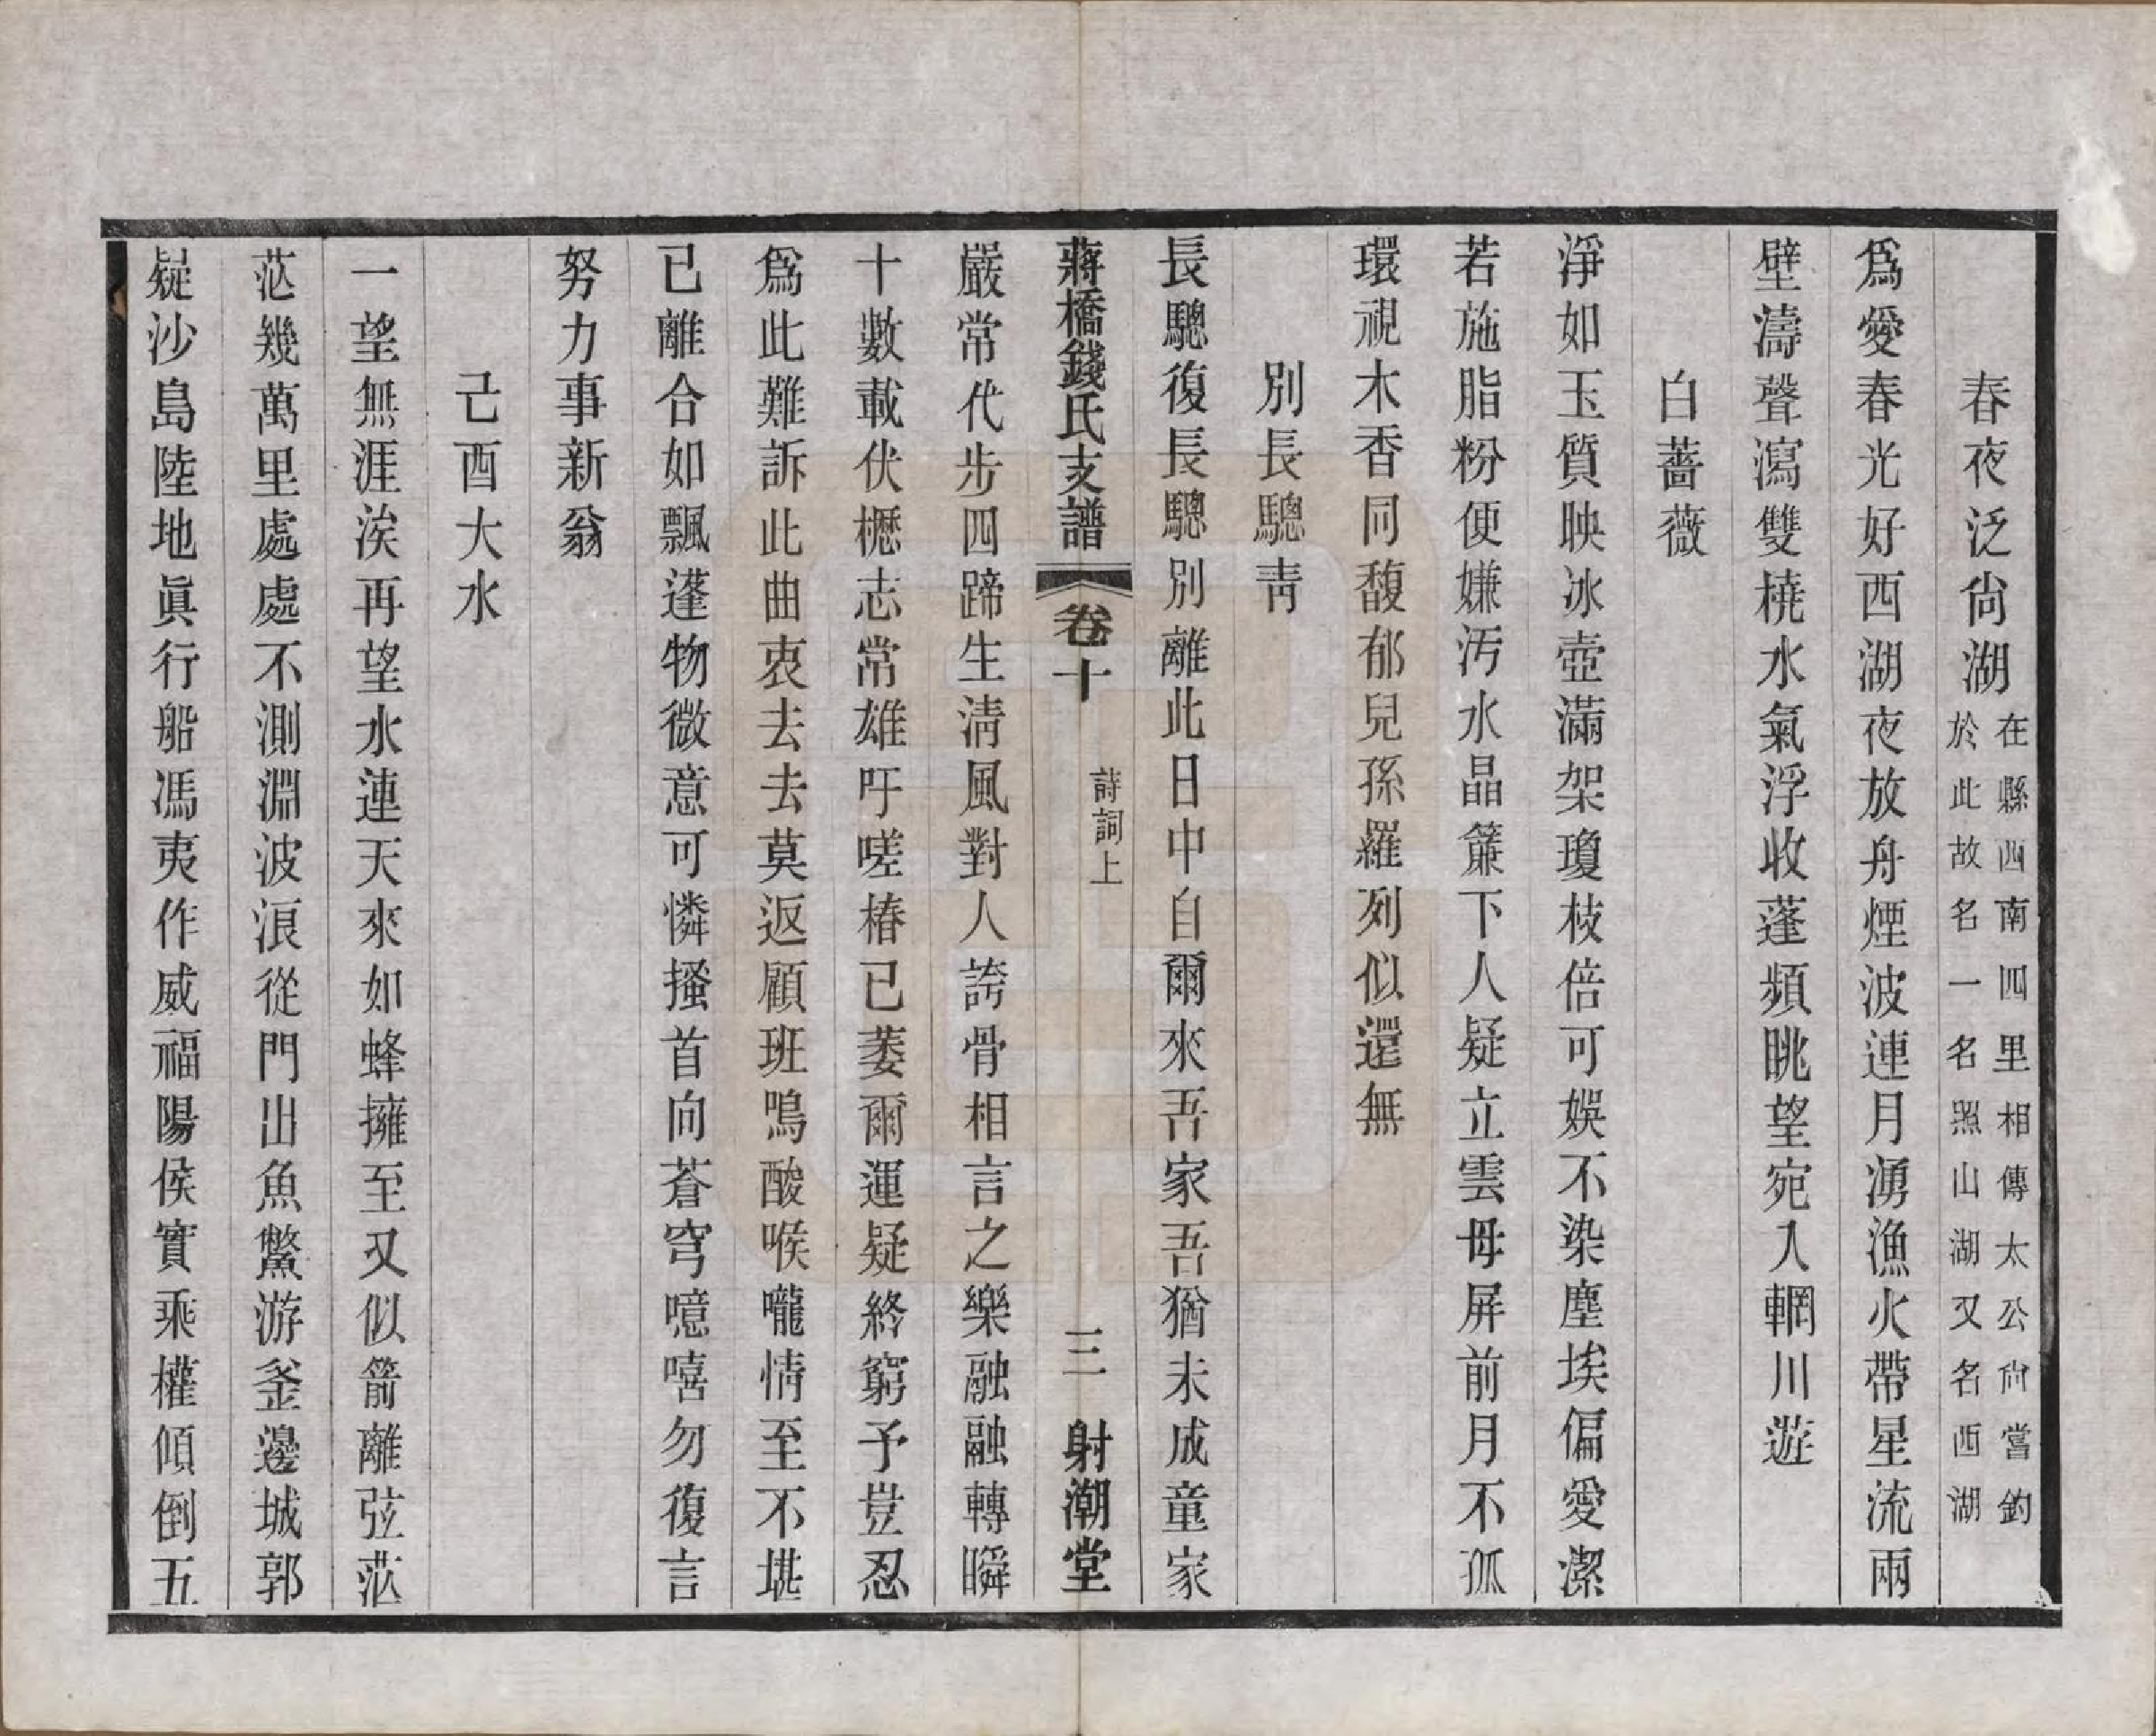 春夜泛尙湖在縣西南四里相傳太公尙嘗釣於此故名一名照山湖又名西湖
爲愛春光好西湖夜放舟煙波連月湧漁火帶星流兩
壁濤聲瀉雙橈水氣浮收蓬頻眺望宛入輞川遊
白薔薇
淨如玉質映冰壺滿架瓊枝倍可娛不染塵埃偏愛潔
若施脂粉便嫌汚水晶簾下人疑立雲母屏前月不孤
環視木香同馥郁兒孫羅列似還無
別長驄靑
長驄復長驄別離此日中自爾來吾家吾猶未成童家
蔣橋錢氏支譜
卷十
詩詞上
三
射潮堂
嚴常代步四蹄生淸風對人誇骨相言之樂融融轉瞬
十數載伏櫪志常雄吁嗟椿已萎爾運疑終窮予豈忍
爲此難訴此曲衷去去莫返顧班鳴酸喉嚨情至不堪
已離合如飄蓬物微意可憐搔首向蒼穹噫嘻勿復言
努力事新翁
己酉大水
一望無涯涘再望水連天來如蜂擁至又似箭離弦茫
茫幾萬里處處不測淵波浪從門出魚鱉游釜邊城郭
疑沙島陸地眞行船馮夷作威福陽侯實乘權傾倒五